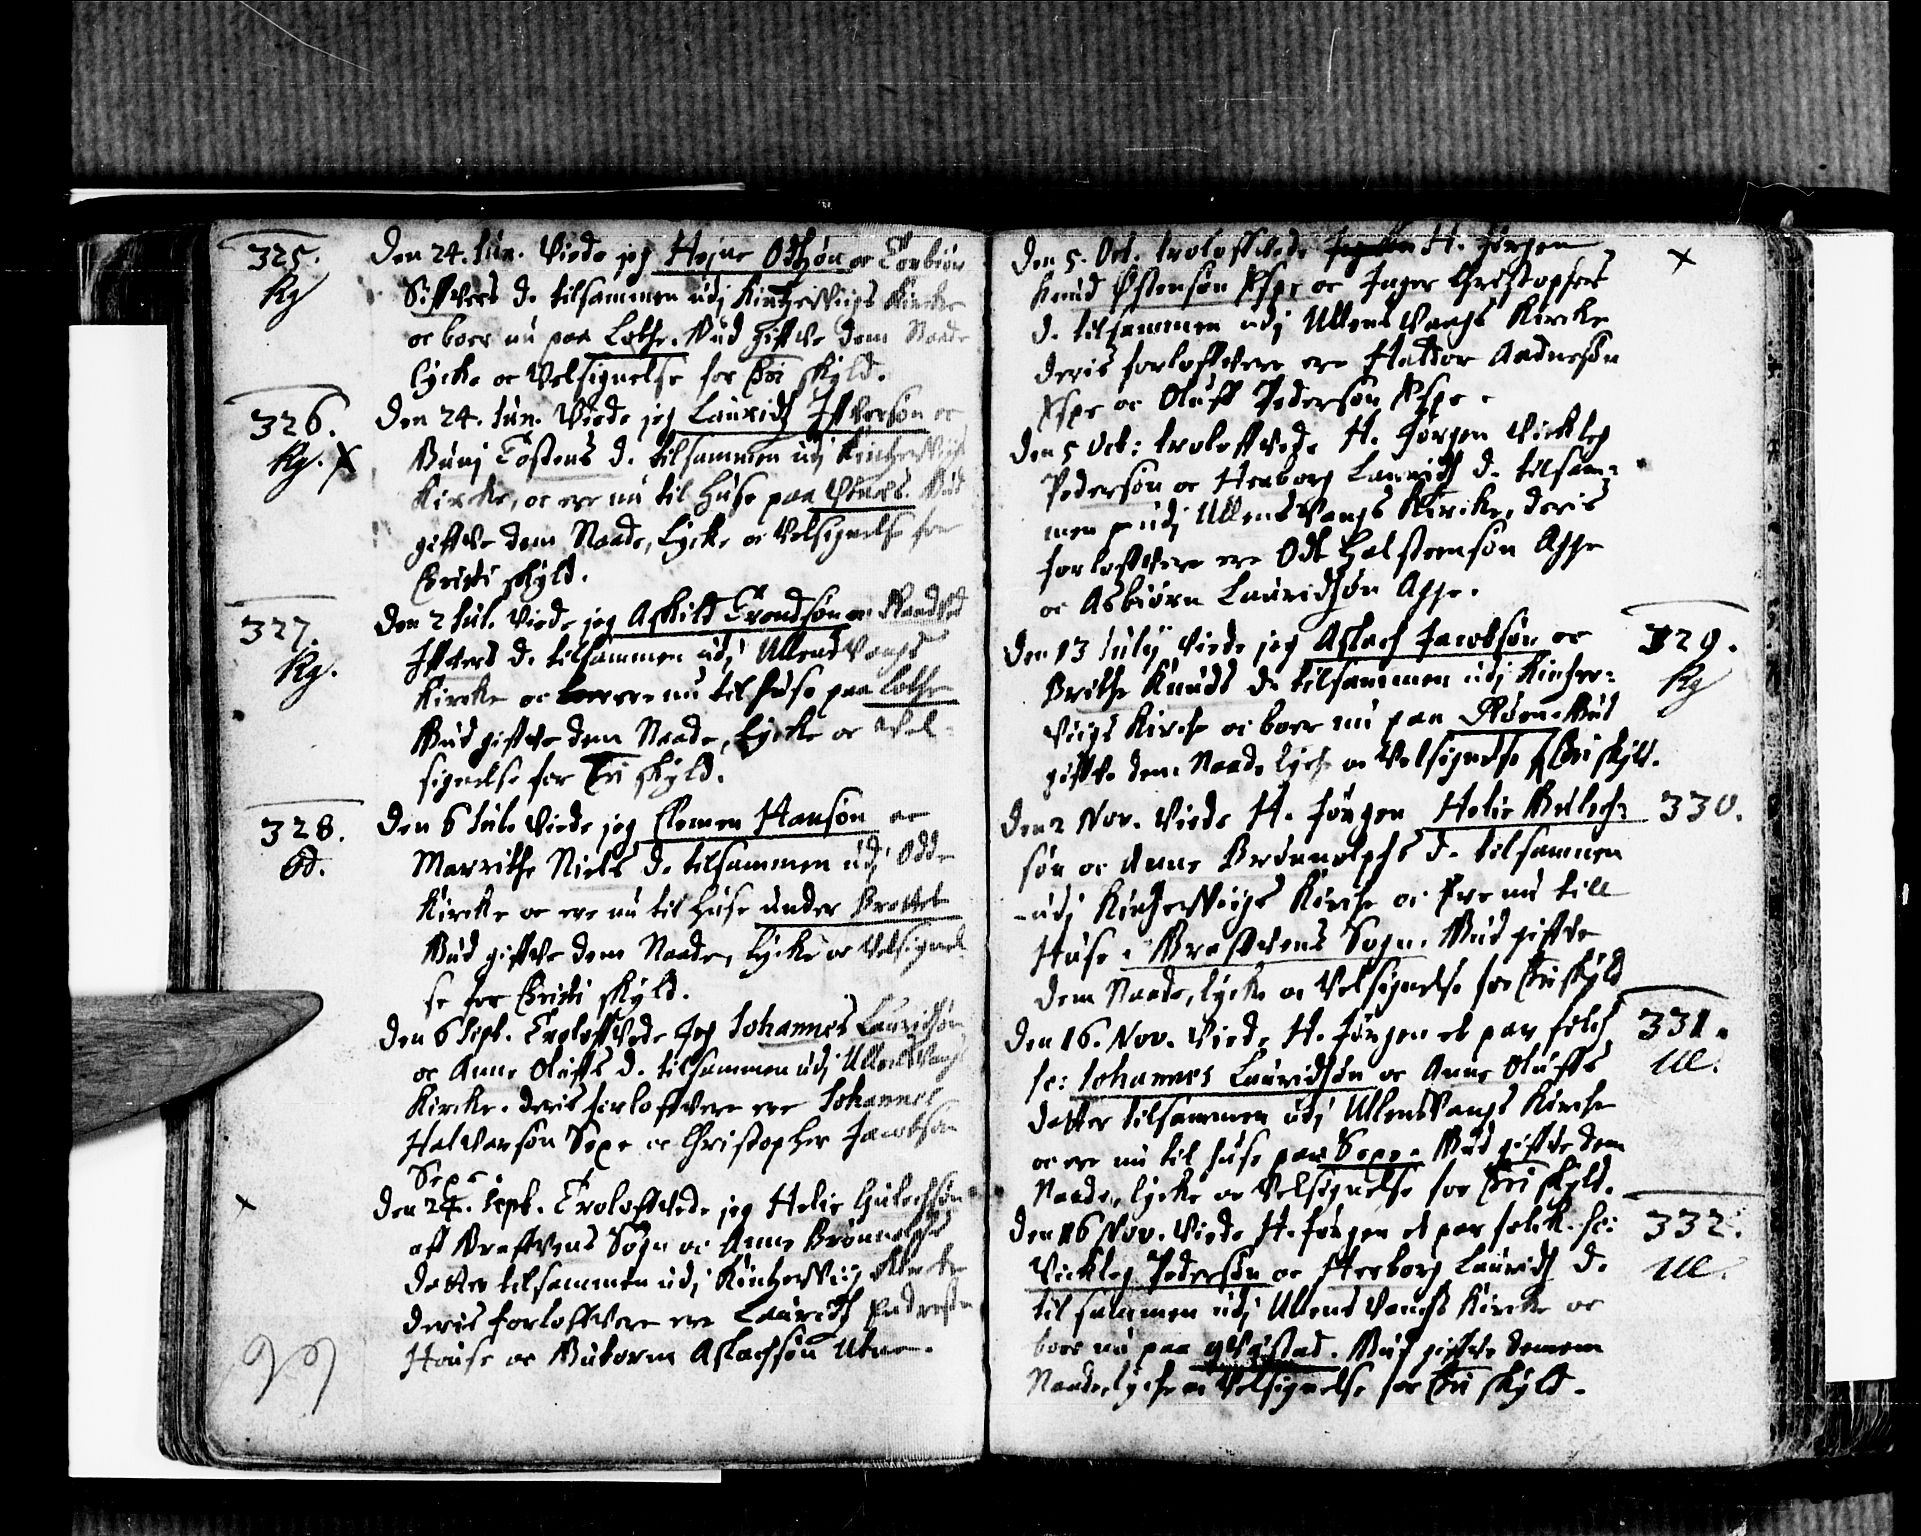 325.
Kg
Den 24. Jun. Viede jeg Hejne Odtsøn oc Torbiør
Siffvers d. tilsammen udj Kintzerviigs Kircke
oc boer nu paa Lothe. Gud giffve dem Naade
lycke oc Velsignelse for Chri skyld.
326.
Kg. X
Den 24. Jun. Viede jeg Lauridtz Iffverson oc
Gunj Tostens d. tilsammen udj Kintzerviigs
Kircke, oc ere nu til Huse paa Gud
giffve dem Naade, Lycke oc Velsignelse for
Christi skyld.
327.
Kg.
Den 2 Jul. Viede jeg Askild Trondsøn oc
Iffvers d. tilsammen udj Ullensvangs
Kircke oc ere nu til huse paa Lothe
Gud giffve dem Naade, Lycke oc Vel-
signelse for Chri skyld.
328.
Od.
Den 6 Jul. Viede jeg Clemen Hanson oc
Marrithe Niels d. tilsammen udj Odde
Kircke oc ere nu til huse under Brettet
Gud giffve dem Naade, lycke oc Velsignel-
se for Christi skyld.
Den 6 Sept. Troloffvede Jeg Johannes Lauridsøn
oc Anne Oluffs d. tilsammen udj Ullensvangs
Kircke. deris forloffvere ere Johannes
Halvarson Sexe oc Christopher Jacobson
Sexe.
x
Den 24. Sept. Troloffvede jeg Helie Gulechsøn
aff Graffvens Sogn oc Anne Brønnolphs
datter tilsammen udj Kintzerviig
deris forloffvere ere Lauridtz
House oc Gutorm Aslachsøn Utne.
Den 5. Oct. troloffvede H. Jørgen
x
Knud Østensøn Espe oc Inger Christophers
d. tilsammen udj Ullensvangs Kircke
deris forloffvere ere Haldor Aadnesøn
Espe oc Oluff Pederson Espe.
Den 5 Oct: troloffvede H. Jørgen Vickleg
Pedersøn oc Herborg Lauridtz d. tilsam-
men udj Ullensvangs Kircke, deris
forloffvere ere Odt Halsteensøn Aghe
oc Asbiørn Lauridsøn Aghe.
329.
Kg
Den 13 July Viede jeg Aslach Jacobsøn oc
Brithe Knuds d. tilsammen udj Kintzer-
viigs Kirche oc boer nu paa Gud
giffve dem Naade lyche oc Velsignelse f Chri skyld.
330.
Den 2 Nov. Viede H. Jørgen Helie Gulech-
søn oc Anne Brønnolphs d. tilsammen
udj Kintzerviigs Kirche oc Ere nu till
Huse i Graffvens Sogn. Gud giffve
dem Naade, lycke oc Velsignelse for Chri skyld
331.
Ull.
Den 16. Nov. Viede H. Jørgen et par folch
sc: Johannes Lauridsøn oc Anne Oluffs
datter tilsammen udj Ullensvangs Kirche
oc ere nu til huse paa Sexe. Gud giffve dem
Naade, lycke oc Velsignelse for Chri skyld.
332.
Ull.
Den 16 Nov. Viede H. Jørgen et par folck. sc:
Vickleg Pedersøn oc Herborg Lauridtz d.
tilsammen udj Ullensvangs Kircke oc
boer nu paa Qvistad. Gud giffve dennem
Naade, lyche oc Velsignelse for Chri skyld.